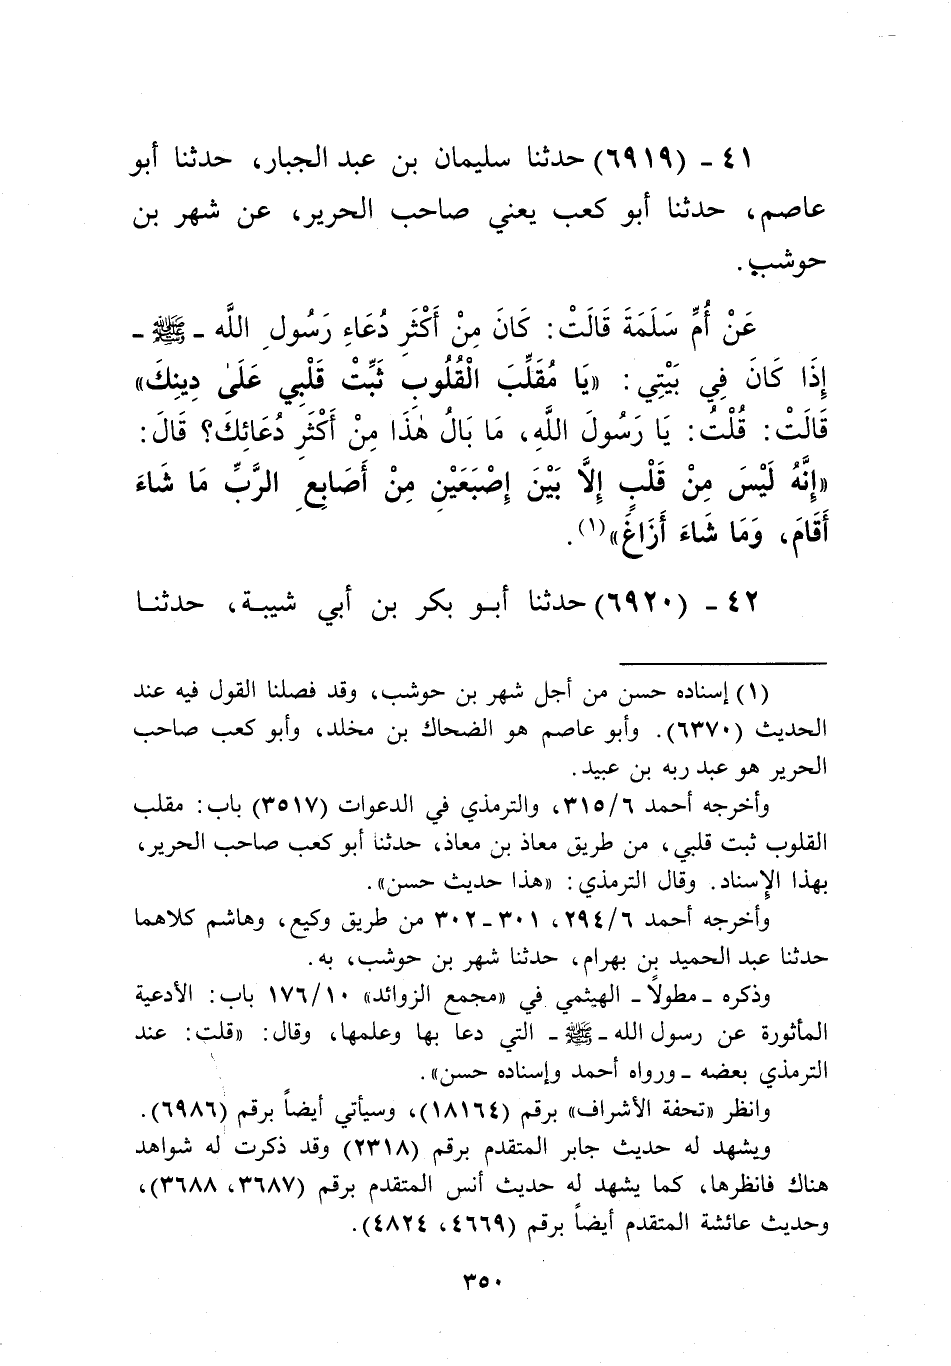 ٤١ ـ (٦٩١٩) حدثنا سليمان بن عبد الجبار، حدثنا أبو
عاصم، حدثنا أبو كعب يعني صاحب الحرير، عن شهر بن
حوشب.
عَنْ أُمِّ سَلَمَةَ قَالَتْ: كَانَ مِنْ أَكْثَرِ دُعَاءِ رَسُولِ اللَّه ـ ﷺ ـ
إِذَا كَانَ فِي بَيْتِي: «يَا مُقَلِّبَ الْقُلُوبِ ثَبِّتْ قَلْبِي عَلَىٰ دِينِكَ»
قَالَتْ: قُلْتُ: يَا رَسُولَ اللَّهِ، مَا بَالُ هٰذَا مِنْ أَكْثَرِ دُعَائِكَ؟ قَالَ:
«إِنَّهُ لَيْسَ مِنْ قَلْبٍ إِلَّا بَيْنَ إِصْبَعَيْنِ مِنْ أَصَابِعِ الرَّبِّ مَا شَاءَ
أَقَامَ، وَمَا شَاءَ أَزَاغَ»(١).
٤٢ ـ (٦٩٢٠) حدثنا أبو بكر بن أبي شيبة، حدثنا
(١) إسناده حسن من أجل شهر بن حوشب، وقد فصلنا القول فيه عند
الحديث (٦٣٧٠). وأبو عاصم هو الضحاك بن مخلد، وأبو كعب صاحب
الحرير هو عبد ربه بن عبيد.
وأخرجه أحمد ٣١٥/٦، والترمذي في الدعوات (٣٥١٧) باب: مقلب
القلوب ثبت قلبي، من طريق معاذ بن معاذ، حدثنا أبو كعب صاحب الحرير،
بهذا الإسناد. وقال الترمذي: «هذا حديث حسن».
وأخرجه أحمد ٢٩٤/٦، ٣٠١ـ٣٠٢ من طريق وكيع، وهاشم كلاهما
حدثنا عبد الحميد بن بهرام، حدثنا شهر بن حوشب، به.
وذكره ـ مطولاً ـ الهيثمي في «مجمع الزوائد» ١٧٦/١٠ باب: الأدعية
المأثورة عن رسول الله ـ ﷺ ـ التي دعا بها وعلمها، وقال: «قلت: عند
الترمذي بعضه ـ ورواه أحمد وإسناده حسن».
وانظر «تحفة الأشراف» برقم (١٨١٦٤)، وسيأتي أيضاً برقم (٦٩٨٦).
ويشهد له حديث جابر المتقدم برقم (٢٣١٨) وقد ذكرت له شواهد
هناك فانظرها، كما يشهد له حديث أنس المتقدم برقم (٣٦٨٧، ٣٦٨٨)،
وحديث عائشة المتقدم أيضاً برقم (٤٦٦٩، ٤٨٢٤).
٣٥٠